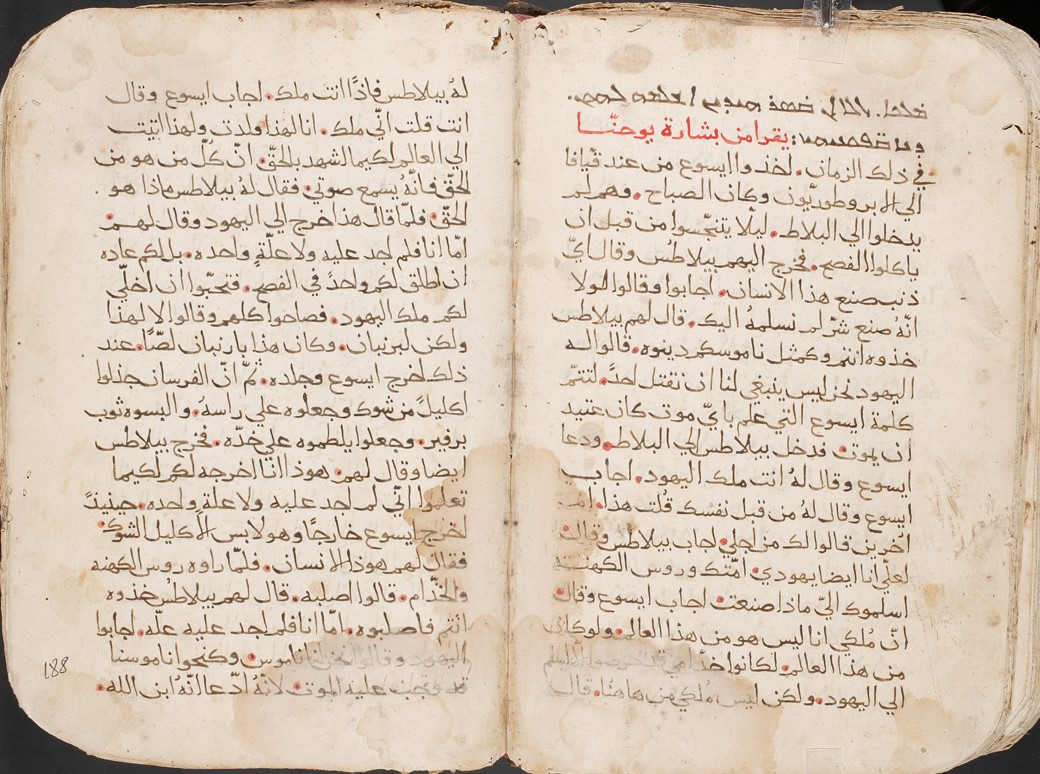 يقرا من بشارة يوحنّا
في ذلك الزمان. اخذوا ايسوع من عند قيافا
الي الابروطوريون وكان الصباح. وهم لم
يدخلوا الي البلاط. ليلّا يتنجّسوا من قبل ان
ياكلوا الفصح. فخرج اليهم بيلاطس وقال ايّ
ذنب صنع هذا الانسان. اجابوا وقالوا لولا
انّهُ صنع شرّ لم نسلمهُ اليك. قال لهم بيلاطس
خذوه انتم وكمثل ناموسكم دينوه. قالوا له
اليهود نحن ليس ينبغي لنا ان نقتل احدً. لتتمّ
كلمة ايسوع التي علم بايّ موت كان عتيد
ان يموت. فدخل بيلاطس الي البلاط. ودعا
ايسوع وقال لهُ انت ملك اليهود. اجاب
ايسوع وقال لهُ من قبل نفسك قلت هذا. ام
اخرين قالوا لك من اجلي. اجاب بيلاطس وقال.
لعلّي انا ايضا يهودي. امّتك وروس الكهنة
اسلموك اليّ ماذا صنعت. اجاب ايسوع وقال.
انّ مُلكي انا ليس هو من هذا العالم. ولو كان
من هذا العالم. لكانوا
الي اليهود. ولكن ليس مُلكي من هاهنا. قال
لهُ بيلاطس فاذًا انت ملك. اجاب ايسوع وقال
انت قلت انّي ملك. انا لهذا ولدت ولهذا اتيت
الي العالم لكيما اشهد بالحقّ. انّ كلّ من هو من
الحقّ فانّهُ يسمع صوتي. فقال لهُ بيلاطس ماذا هو
الحقّ. فلمّا قال هذا خرج الي اليهود وقال لهم.
امّا انا فلم اجد عليه ولا علّةٍ واحده. بل لكم عاده
ان اطلق لكم واحدً في الفصح. فتحبّوا ان اخلّي
لكم ملك اليهود. فصاحوا كلهم وقالوا لا لهذا
ولكن لبرنبان. وكان هذا بارنبان لصًّا. عند
ذلك اخرج ايسوع وجلده. ثمّ انّ الفرسان جدلوا
اكليلً من شوك وجعلوه علي راسهُ. والبسوه ثوب
برفير. وجعلوا يلطموه علي خدّه. فخرج بيلاطس
ايضا وقال لهم. هوذا انا اخرجه لكم لكيما
تعلموا انّي لم اجد عليه ولا علة واحده. حينيذً
اخرج ايسوع خارجًا وهو لابس الاكليل الشوك
فقال لهم هوذا الانسان. فلمّا راوه روس الكهنه
والخدّام. قالوا اصلبه. قال لهم بيلاطُس خذوه
انتم فاصلبوه. امّا انا فلم اجد عليه علّه. اجابوا
اليهود وقالوا نحن لنا ناموس. وكنحو ناموسنا
قد وجب عليه الموت. لانّهُ ادّعا انّهُ ابن الله.
188